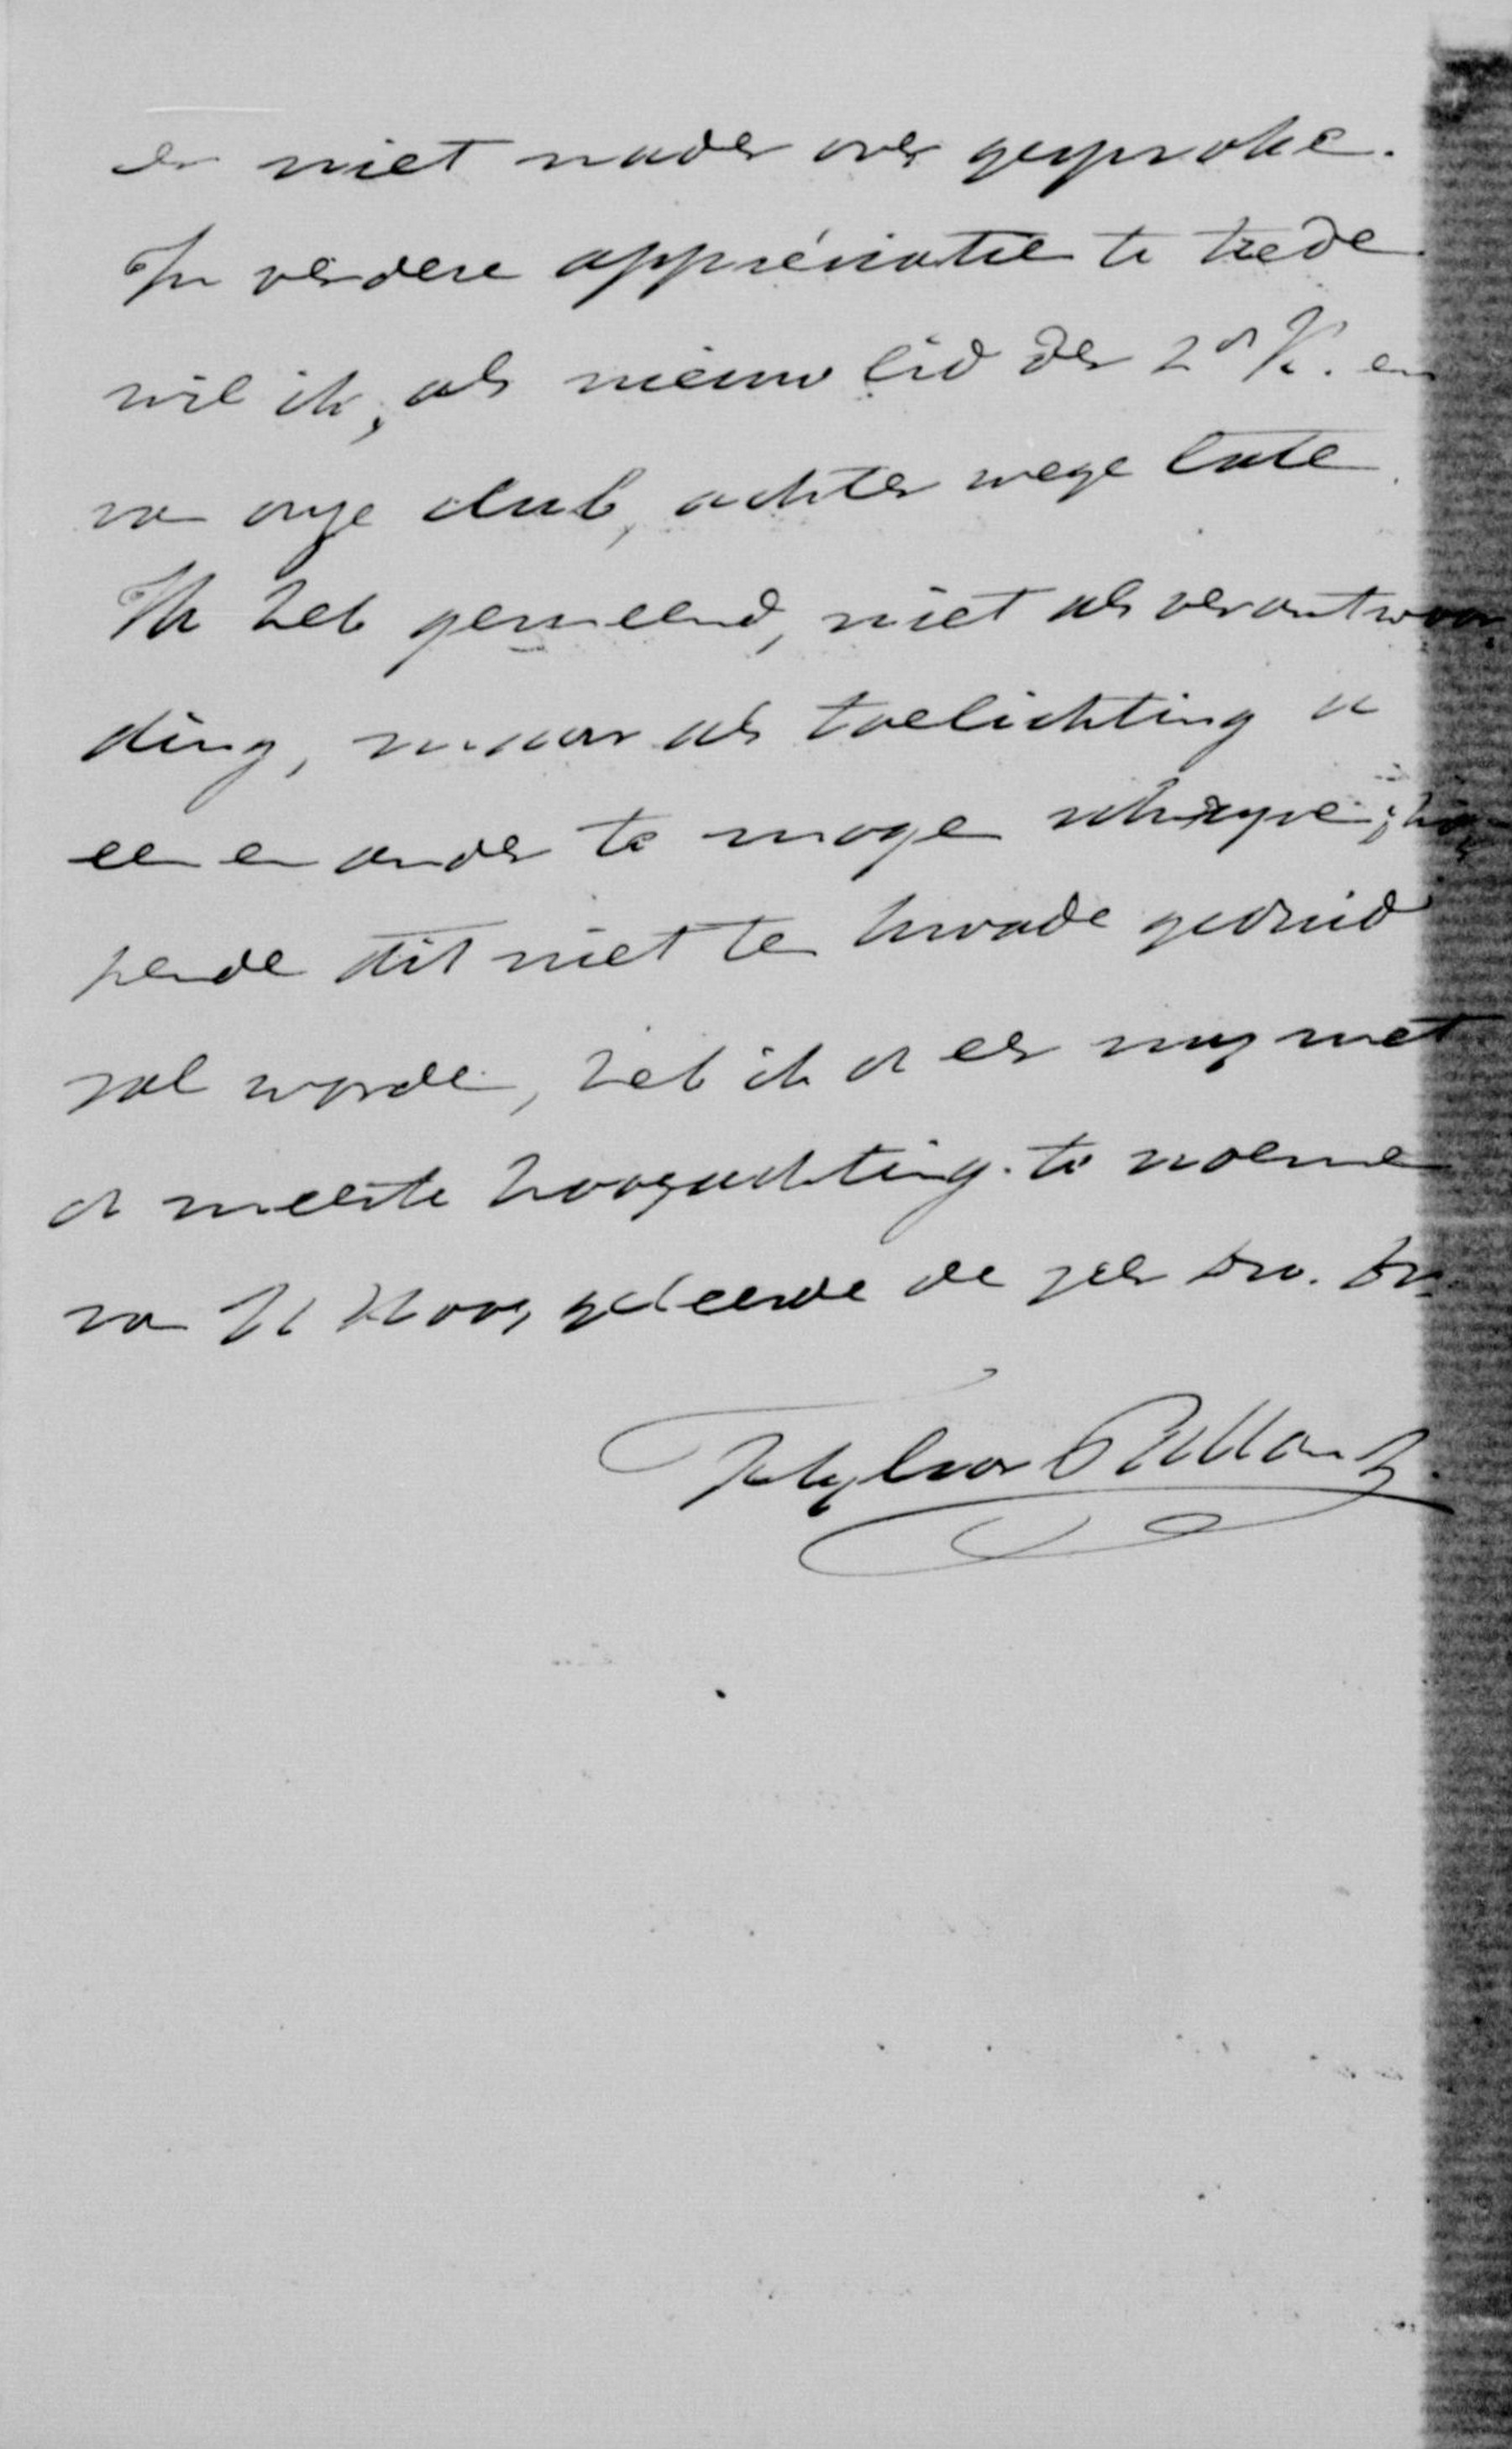 er niet nader over gesproke.
In verdere appréciatie te trede
wil ik, als nieuw lid der 2e K. en
va onze club, achter wege late.
Ik heb gemeend, niet als verantwoor
ding, maar als toelichting u
een en ander te moge schrijve; ho
pende dit niet te kwade geduid
zal worde, heb ik de eer mij met
de meeste hoogachting te noeme
va U Hoog geleerde de zeer dw. dr.